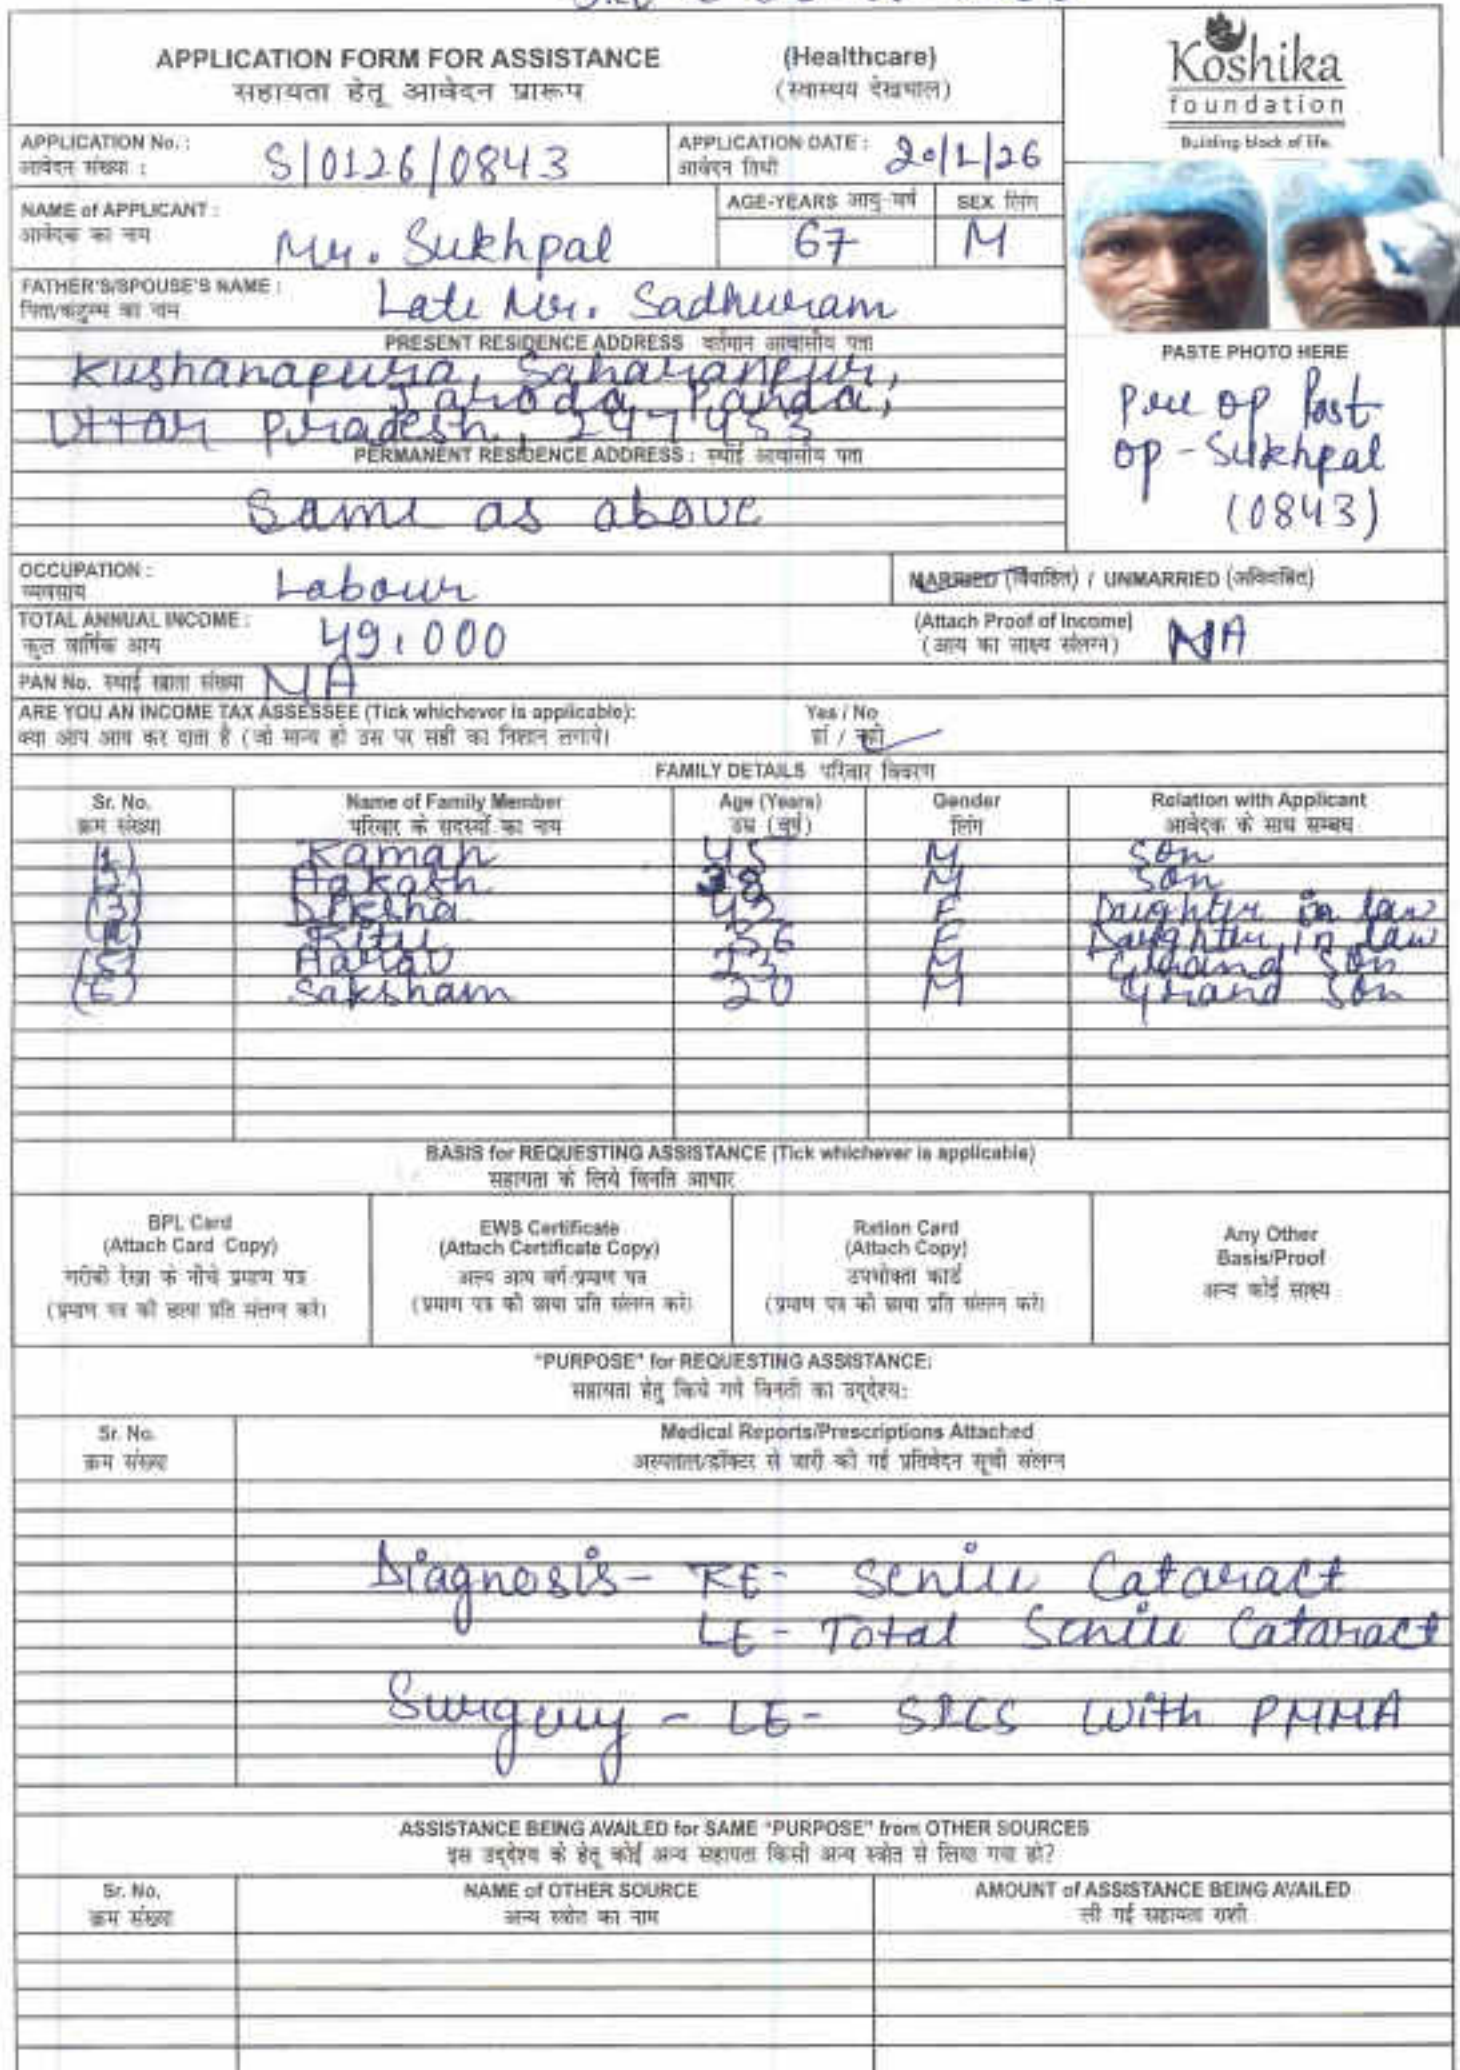 APPLICATION FORM FOR ASSISTANCE (Healthcare)
सहायता हेतू आवेदन प्रारूप (स्वास्थय देखभाल)
Koshika
foundation
Building block of life.
APPLICATION No. : S/0126/0843 APPLICATION DATE : 20/1/26
आवेदन संख्या : आवेदन तिथी
NAME of APPLICANT : Mr. Sukhpal AGE-YEARS आयु-वर्ष 67 SEX लिंग M
आवेदक का नाम
FATHER'S/SPOUSE'S NAME : Late Mr. Sadhuram
पिता/कुटुम्ब का नाम
PRESENT RESIDENCE ADDRESS वर्तमान आवासीय पता
Kushanapura, Saharanpur,
Jaroda Panda,
Uttar Pradesh, 247453
PERMANENT RESIDENCE ADDRESS : स्थाई आवासीय पता
Same as above
PASTE PHOTO HERE
Pre op Post
op - Sukhpal
(0843)
OCCUPATION : Labour MARRIED (विवाहित) / UNMARRIED (अविवाहित)
व्यवसाय
TOTAL ANNUAL INCOME : 49,000 (Attach Proof of Income) NA
कुल वार्षिक आय (आय का साक्ष्य संलग्न)
PAN No. स्थाई खाता संख्या NA
ARE YOU AN INCOME TAX ASSESSEE (Tick whichever is applicable): Yes / No
क्या आप आय कर दाता है (जो मान्य हो उस पर सही का निशान लगाये) हाँ / नहीं
FAMILY DETAILS परिवार विवरण
Sr. No. Name of Family Member Age (Years) Gender Relation with Applicant
क्रम संख्या परिवार के सदस्यों का नाम उम्र (वर्ष) लिंग आवेदक के साथ सम्बध
(1) Raman 45 M Son
(2) Aakash 38 M Son
(3) Diksha 42 F Daughter in law
(4) Ritu 36 F Daughter in law
(5) 23 M Grand Son
(6) Saksham 20 M Grand Son
BASIS for REQUESTING ASSISTANCE (Tick whichever is applicable)
सहायता के लिये विनति आधार
BPL Card
(Attach Card Copy)
गरीबी रेखा के नीचे प्रमाण पत्र
(प्रमाण पत्र की छाया प्रति संलग्न करे)
EWS Certificate
(Attach Certificate Copy)
अल्प आय वर्ग प्रमाण पत्र
(प्रमाण पत्र की छाया प्रति संलग्न करे)
Ration Card
(Attach Copy)
उपभोक्ता कार्ड
(प्रमाण पत्र की छाया प्रति संलग्न करे)
Any Other
Basis/Proof
अन्य कोई साक्ष्य
"PURPOSE" for REQUESTING ASSISTANCE:
सहायता हेतु किये गये विनती का उद्देश्य:
Sr. No. Medical Reports/Prescriptions Attached
क्रम संख्या अस्पताल/डॉक्टर से जारी की गई प्रतिवेदन सूची संलग्न
Diagnosis - RE - Senile Cataract
LE - Total Senile Cataract
Surgery - LE - SICS with PMMA
ASSISTANCE BEING AVAILED for SAME "PURPOSE" from OTHER SOURCES
इस उद्देश्य के हेतू कोई अन्य सहायता किसी अन्य स्त्रोत से लिया गया हो?
Sr. No. NAME of OTHER SOURCE AMOUNT of ASSISTANCE BEING AVAILED
क्रम संख्या अन्य स्त्रोत का नाम ली गई सहायता राशी